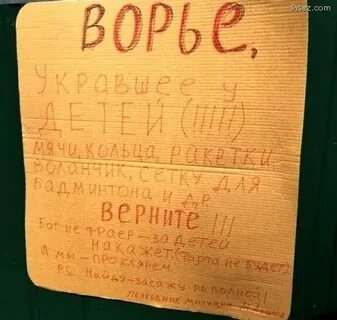 Pisez.com
ВОРЬЕ,
Укравшее у
ДЕТЕЙ (!!!!!)
мячи, кольца, ракетки,
воланчик, сетку для
бадминтона и др.
верните !!!
Бог не фраер — за детей
накажет. (фарта не будет)
А мы — проклянем.
P.S. Найду — засажу по полной!
Полковник милиции